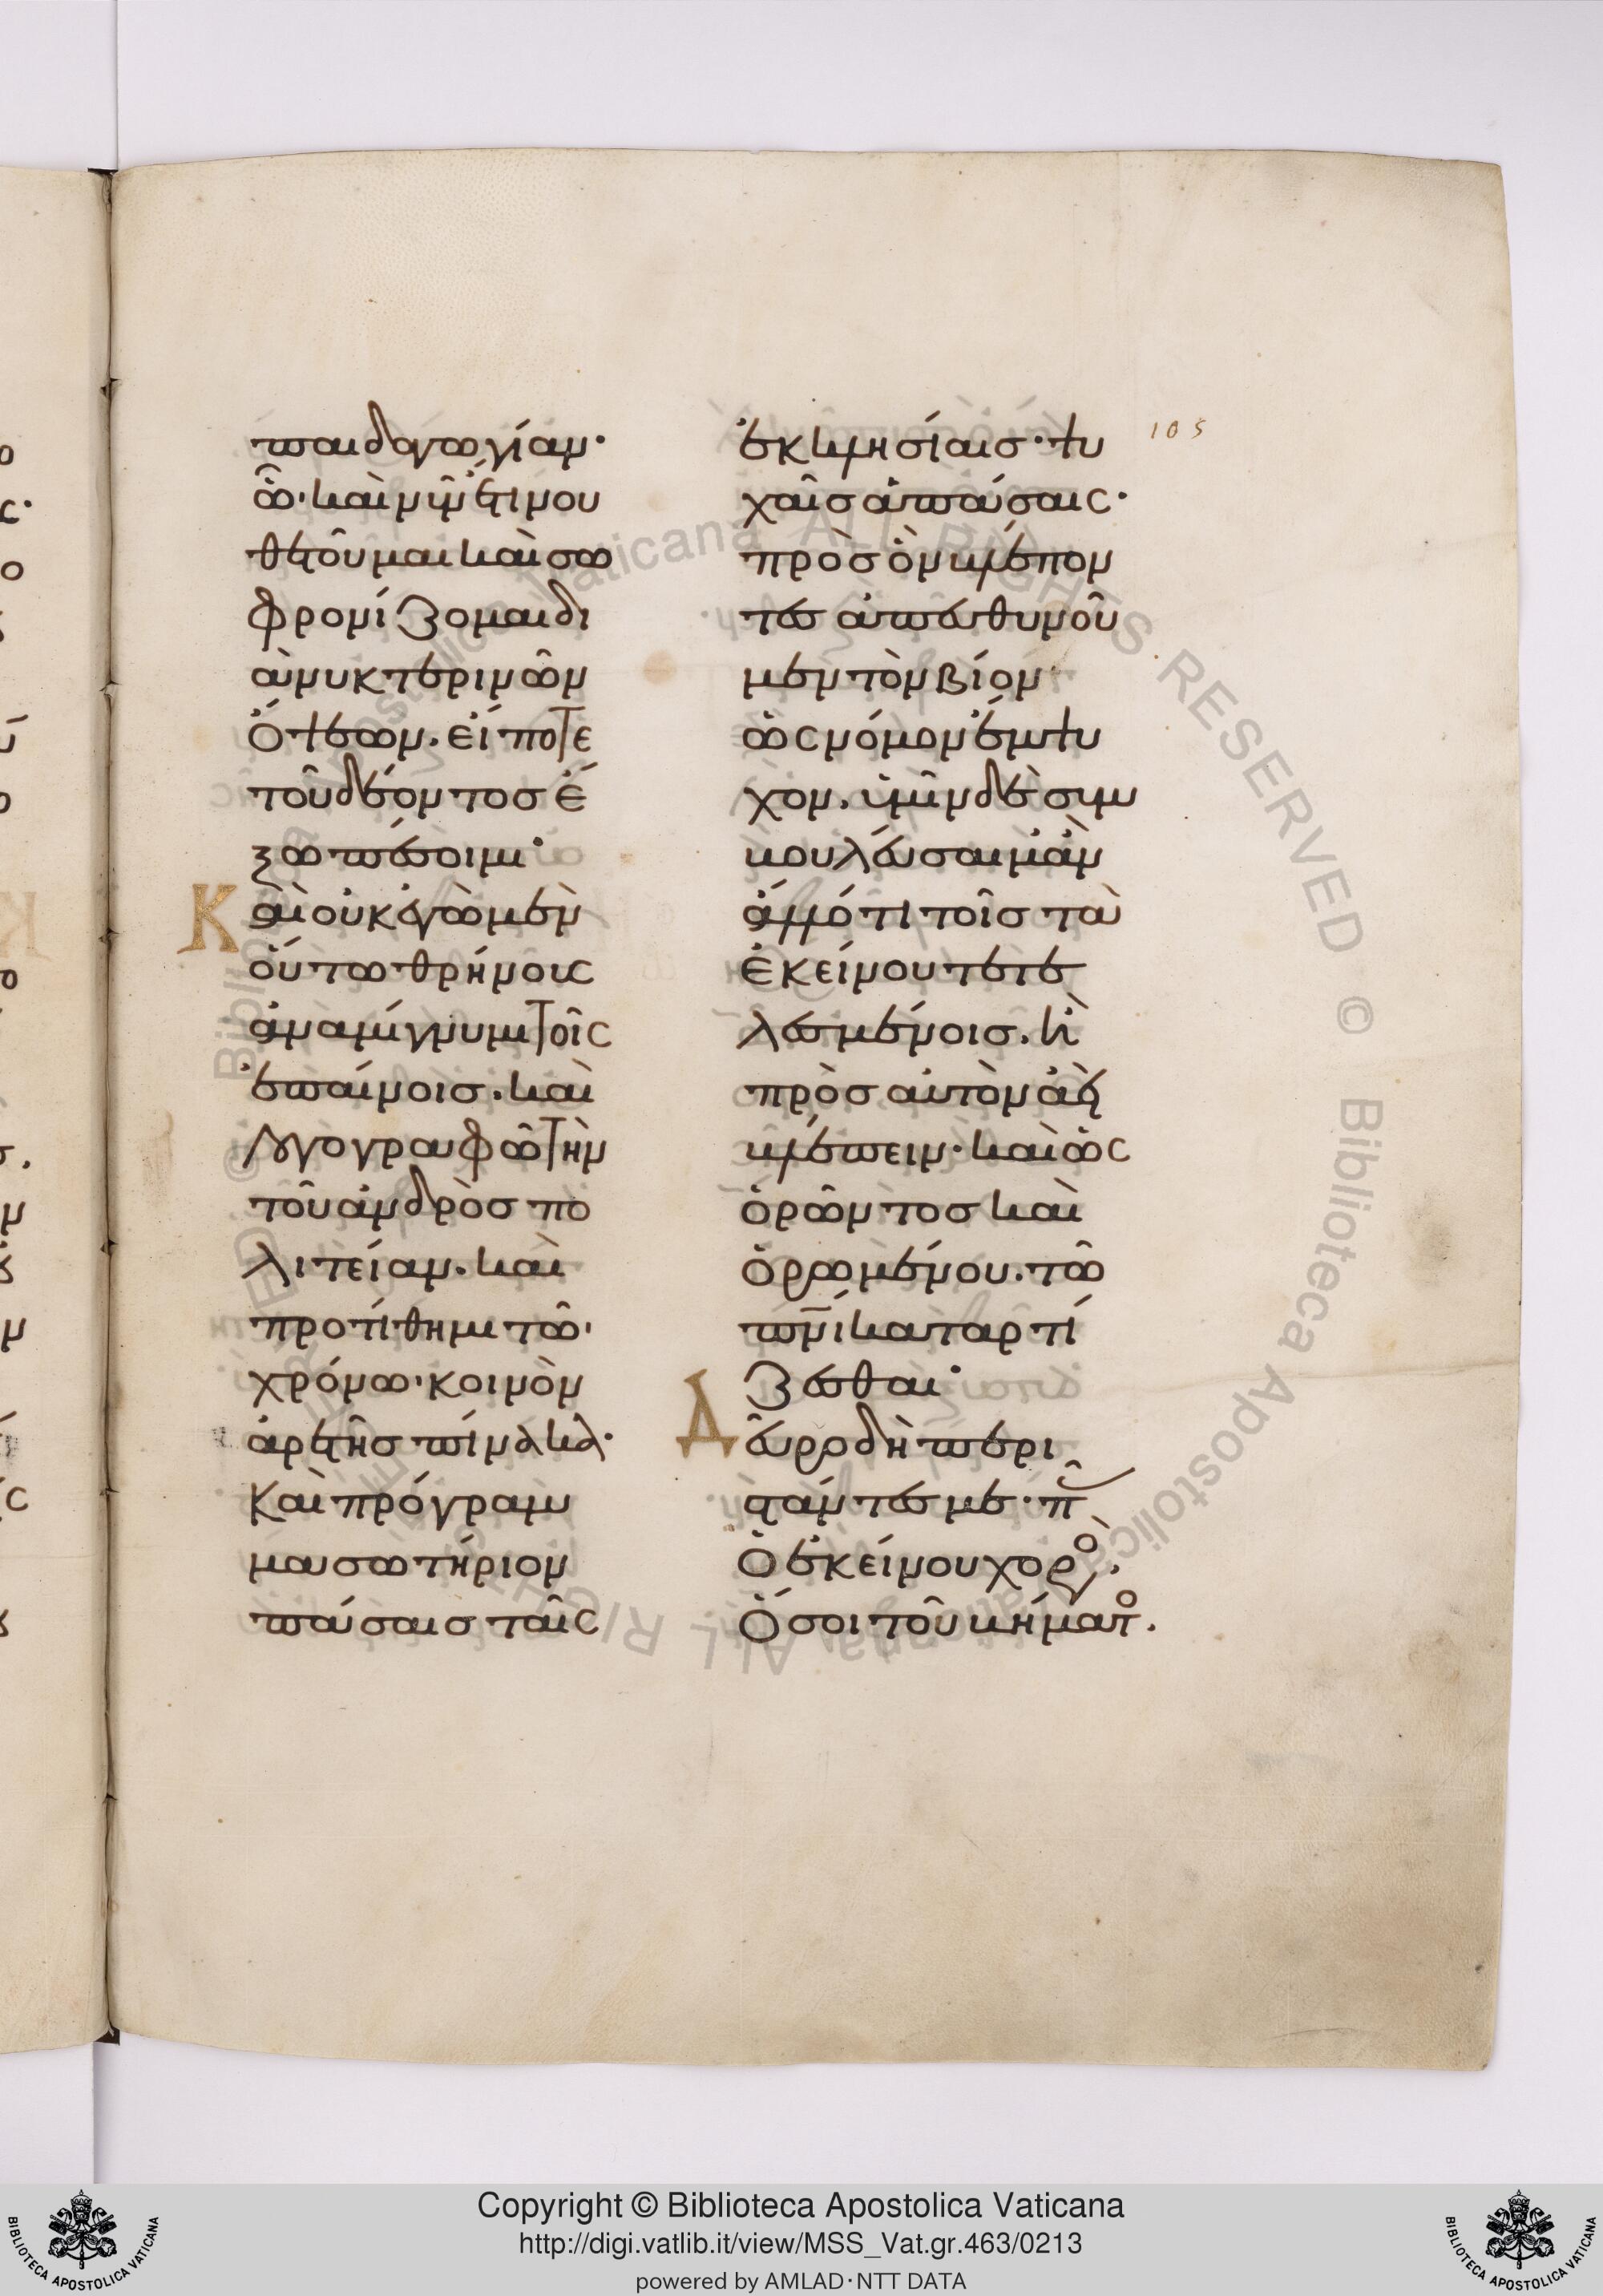 παιδαγωγίαν·
ᾧ· καὶ νῦν ἔτι νου
θετοῦμαι καὶ σω
φρονίζομαι δι
ὰ νυκτερινῶν
ὄψεων. εἴ ποτε
τοῦ δέοντος ἔ
ξω πέσοιμι·
Καὶ οὐκ ἐγὼ μὲν
οὕτω θρήνοις
ἀναμίγνυμι τοῖς
ἐπαίνοις. καὶ
λογογραφῶ τὴν
τοῦ ἀνδρὸς πο
λιτείαν. καὶ
προτίθημι τῷ·
χρόνω· κοινὸν
ἀρετῆς πίνακα·
καὶ πρόγραμ
μα σωτήριον
πάσαις ταῖς
105
ἐκκλησίαις· ψυ
χαῖς ἁπάσαις·
πρὸς ὃν βλέπον
τες ἀπευθυνοῦ
μεν τὸν βίον·
ὡς νόμον ἔμψυ
χον. ὑμῖν δὲ συμ
βουλεύσαιμι ἂν
ἄλλό τι τοῖς τὰ
ἐκείνου τετε
λεσμένοις. ἢ
πρὸς αὐτὸν ἀεὶ
βλέπειν· καὶ ὡς
ὁρῶντος καὶ
ὁρωμένου. τῶ
πν̅ι καταρτί
ζεσθαι·
Δεῦρο δὴ περι
στάντες με· πᾶς
ὁ ἐκείνου χορὸς.
ὅσοι τοῦ βήματος.
Copyright © Biblioteca Apostolica Vaticana
http://digi.vatlib.it/view/MSS_Vat.gr.463/0213
powered by AMLAD·NTT DATA
BIBLIOTECA APOSTOLICA VATICANA
BIBLIOTECA APOSTOLICA VATICANA